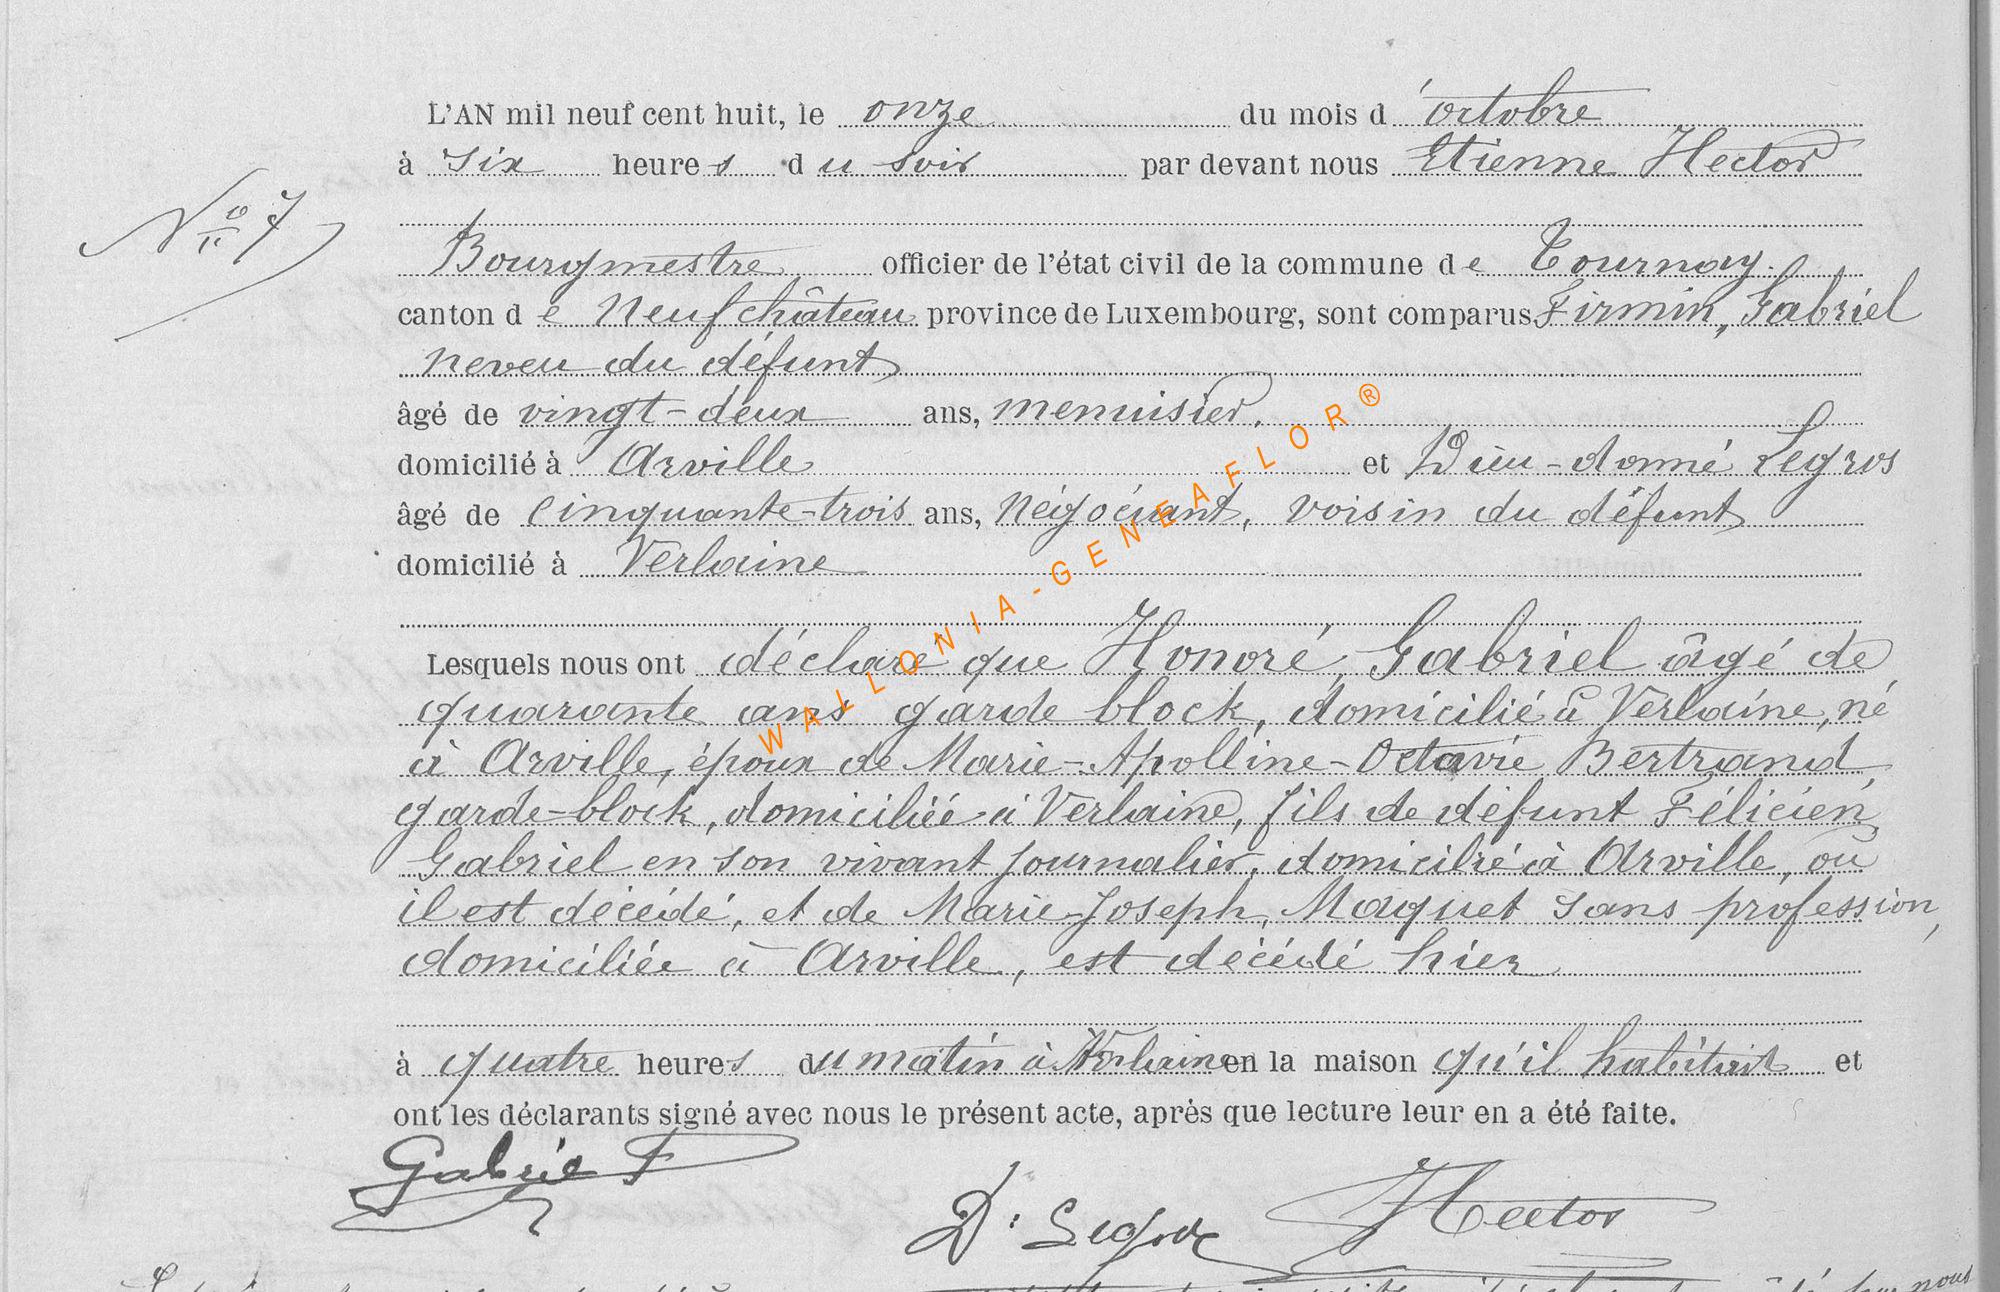 L'AN mil neuf cent huit, le onze du mois d'octobre
à six heures du soir par devant nous Etienne Hector
No 7
Bourgmestre, officier de l'état civil de la commune de Tournay.
canton de Neufchâteau province de Luxembourg, sont comparus Firmin, Gabriel
neveu du défunt
âgé de vingt-deux ans, menuisier,
domicilié à Arville et Dieu-donné Legros
âgé de cinquante-trois ans, négociant, voisin du défunt
domicilié à Verlaine
Lesquels nous ont déclaré que Honoré, Gabriel âgé de
quarante ans garde block, domicilié à Verlaine, né
à Arville, époux de Marie-Apolline-Octavie Bertrand,
garde-block, domiciliée à Verlaine, fils de défunt Félicien
Gabriel en son vivant journalier, domicilié à Arville, où
il est décédé, et de Marie-Joseph, Maquet sans profession,
domiciliée à Arville, est décédé hier
à quatre heures du matin à Verlaine en la maison qu'il habitait et
ont les déclarants signé avec nous le présent acte, après que lecture leur en a été faite.
Gabriel F
D. Legros Hector
WALLONIA-GENEAFLOR®